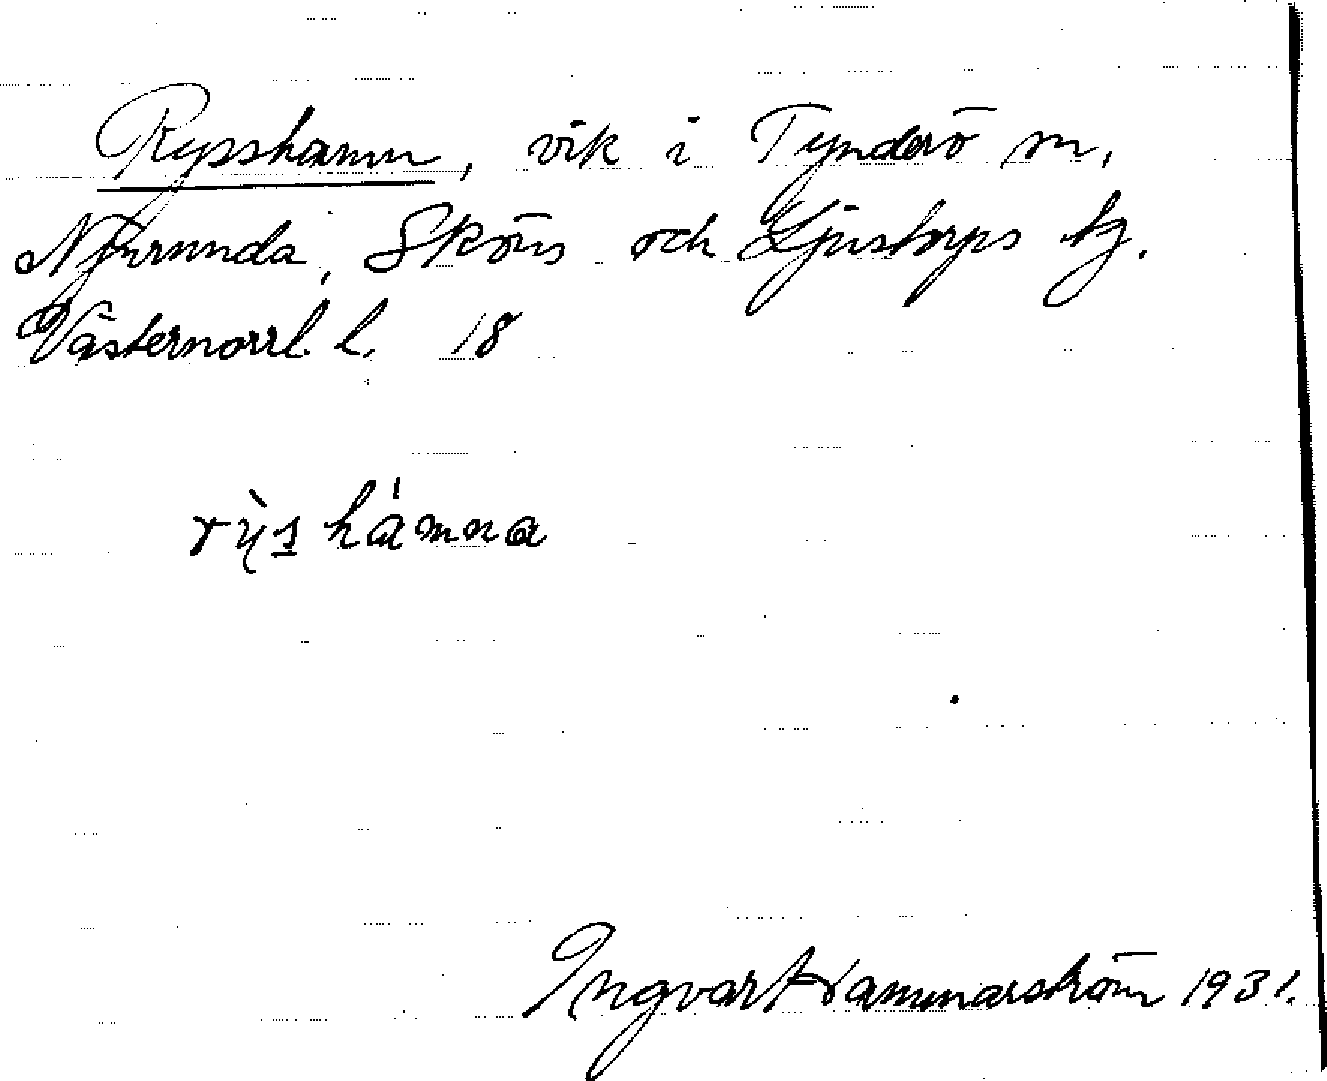 Rysshamn, vik i Tynderö sn,
Njurunda, Sköns och Ljustorps tg.
Västernorrl. l. 18
rỳshámna
Ingvar Hammarström 1931.